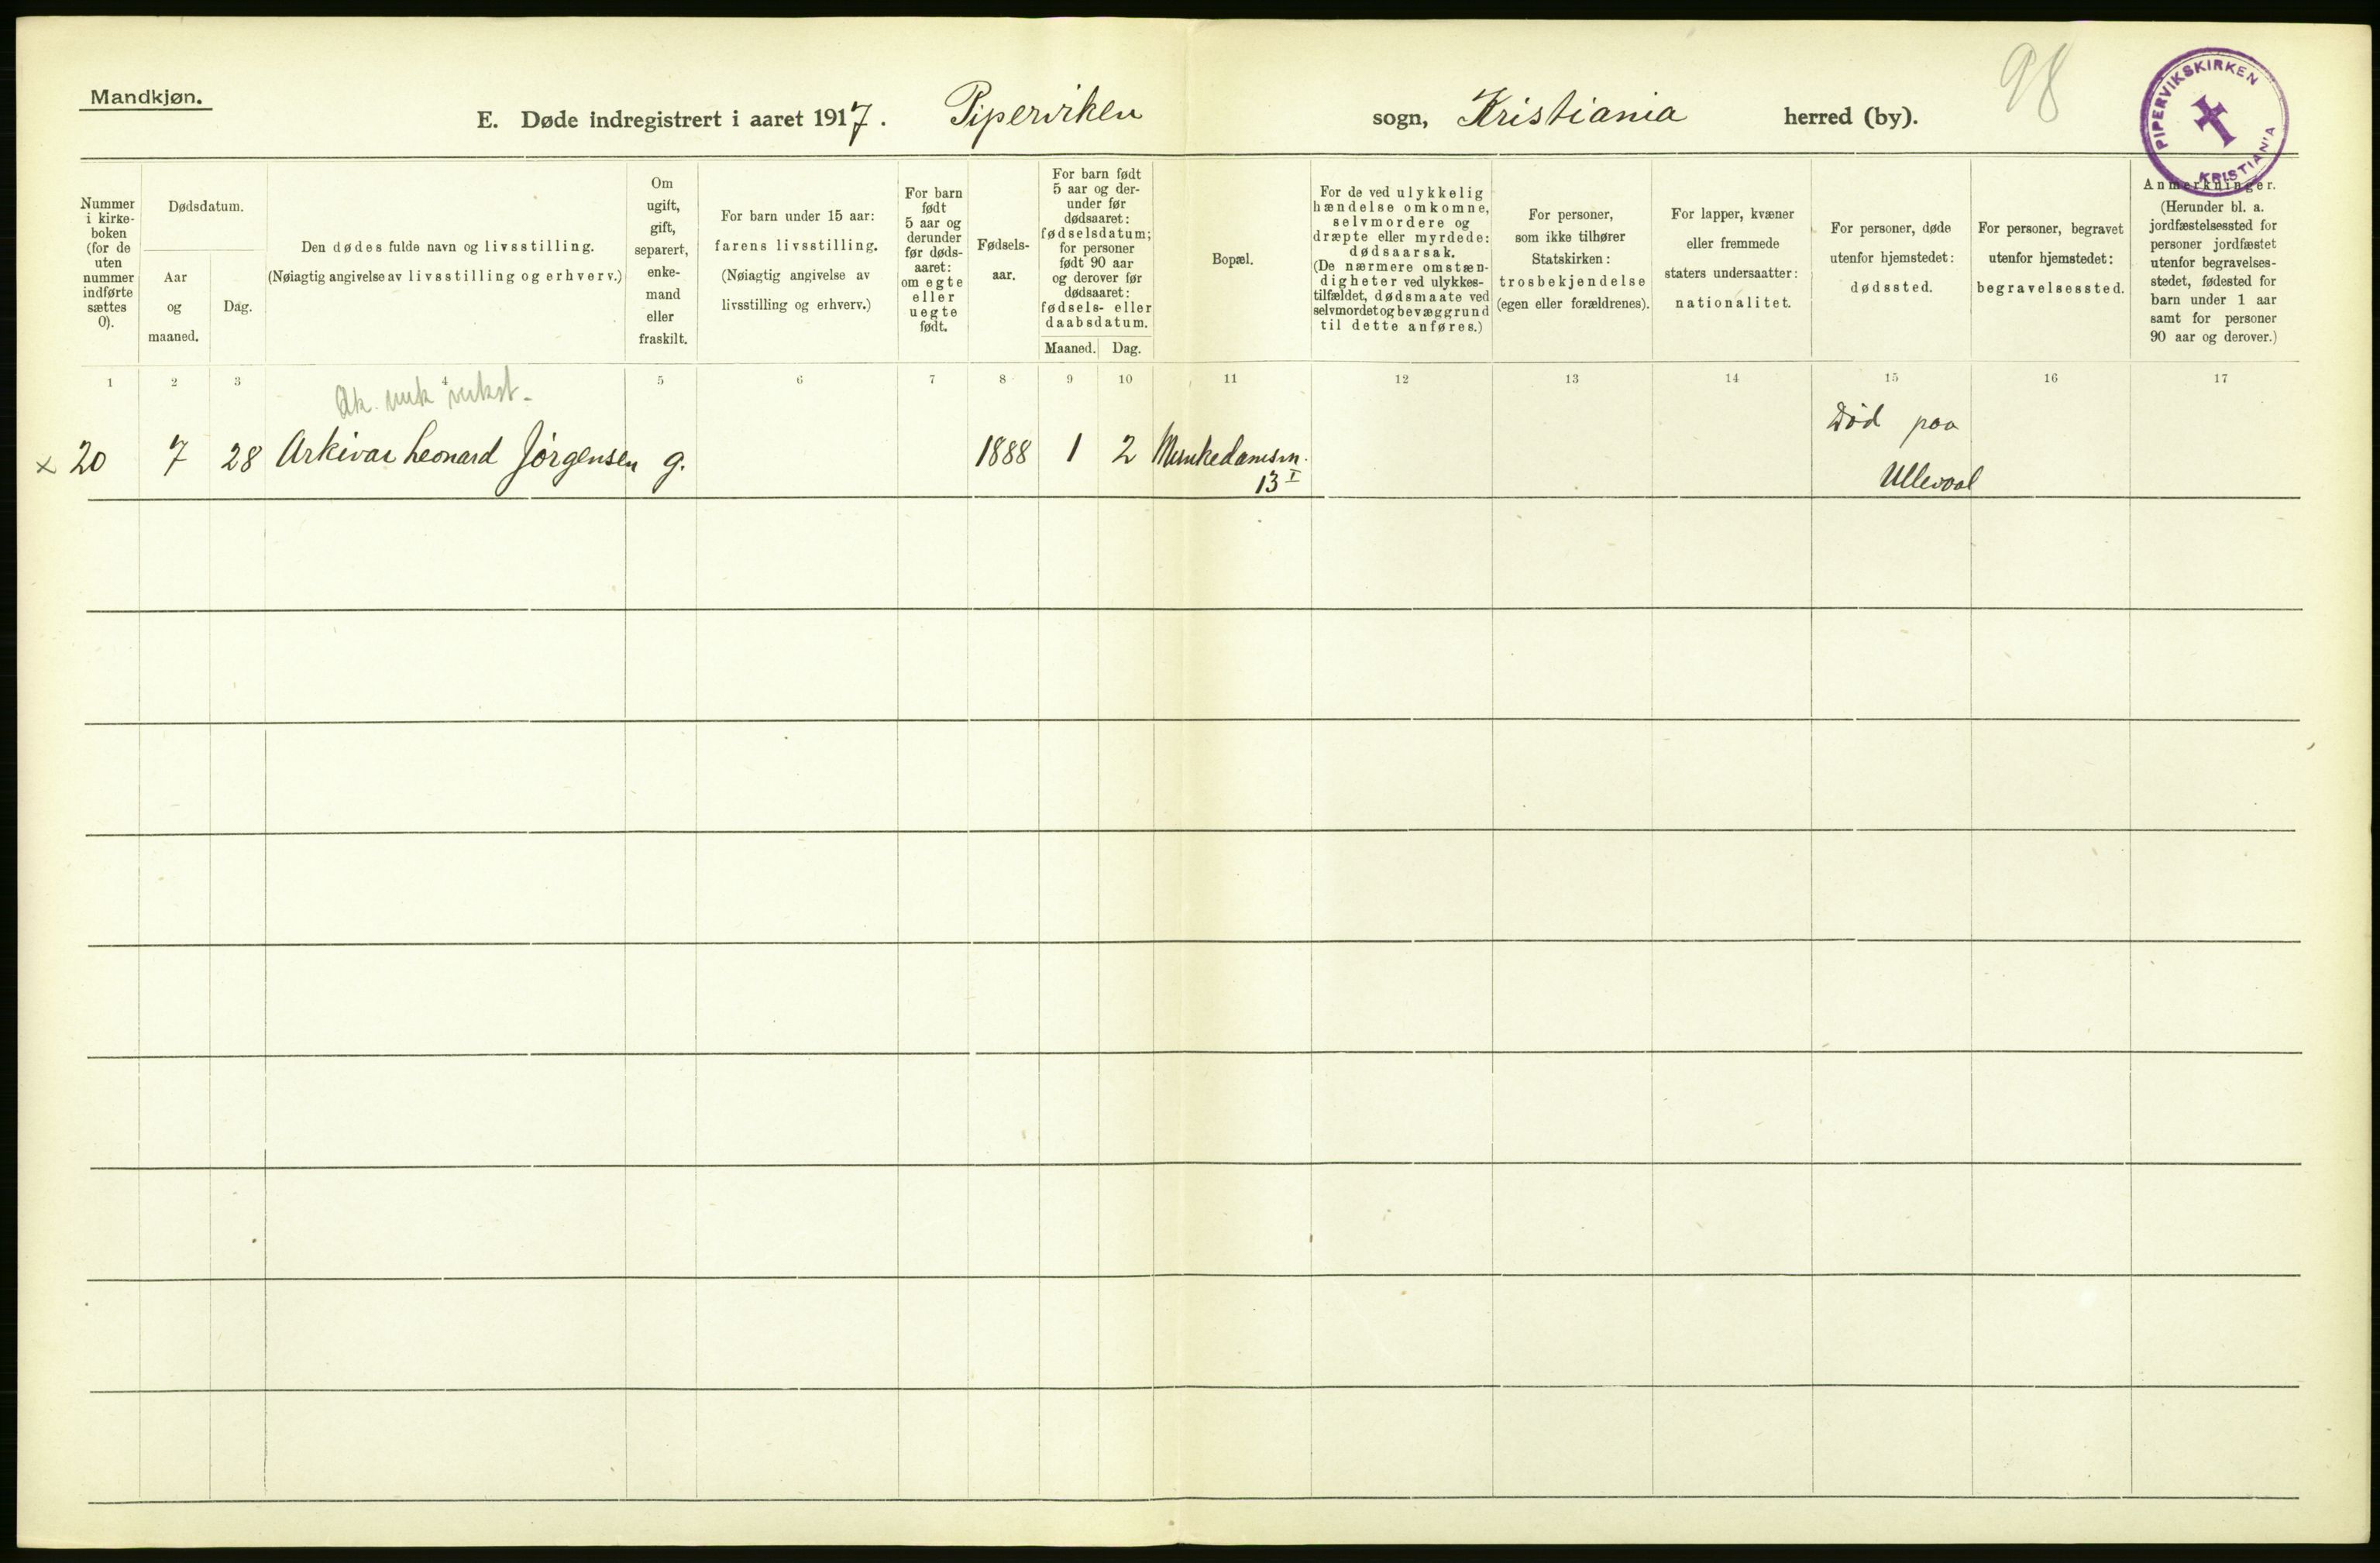 Mandkjøn.
E. Døde indregistrert i aaret 1917. Piperviken sogn, Kristiania herred (by).
98
PIPERVIKSKIRKEN
KRISTIANIA
Nummer
i kirke-
boken
(for de
uten
nummer
indførte
sættes
0).
Dødsdatum.
Aar
og
maaned.
Dag.
Den dødes fulde navn og livsstilling.
(Nøiagtig angivelse av livsstilling og erhverv.)
Om
ugift,
gift,
separert,
enke-
mand
eller
fraskilt.
For barn under 15 aar:
farens livsstilling.
(Nøiagtig angivelse av
livsstilling og erhverv.)
For barn
født
5 aar og
derunder
før døds-
aaret:
om egte
eller
uegte
født.
Fødsels-
aar.
For barn født
5 aar og der-
under før
dødsaaret:
fødselsdatum;
for personer
født 90 aar
og derover før
dødsaaret:
fødsels- eller
daabsdatum.
Maaned. Dag.
Bopæl.
For de ved ulykkelig
hændelse omkomne,
selvmordere og
dræpte eller myrdede:
dødsaarsak.
(De nærmere omstæn-
digheter ved ulykkes-
tilfældet, dødsmaate ved
selvmordet og bevæggrund
til dette anføres.)
For personer,
som ikke tilhører
Statskirken:
trosbekjendelse
(egen eller forældrenes).
For lapper, kvæner
eller fremmede
staters undersaatter:
nationalitet.
For personer, døde
utenfor hjemstedet:
dødssted.
For personer, begravet
utenfor hjemstedet:
begravelsessted.
Anmerkninger.
(Herunder bl. a.
jordfæstelsessted for
personer jordfæstet
utenfor begravelses-
stedet, fødested for
barn under 1 aar
samt for personer
90 aar og derover.)
1 2 3 4 5 6 7 8 9 10 11 12 13 14 15 16 17
x 20 7 28 Arkivar Leonard Jörgensen g. 1888 1 2 Munkedamsvn.
13 I
Död paa
Ullevaal